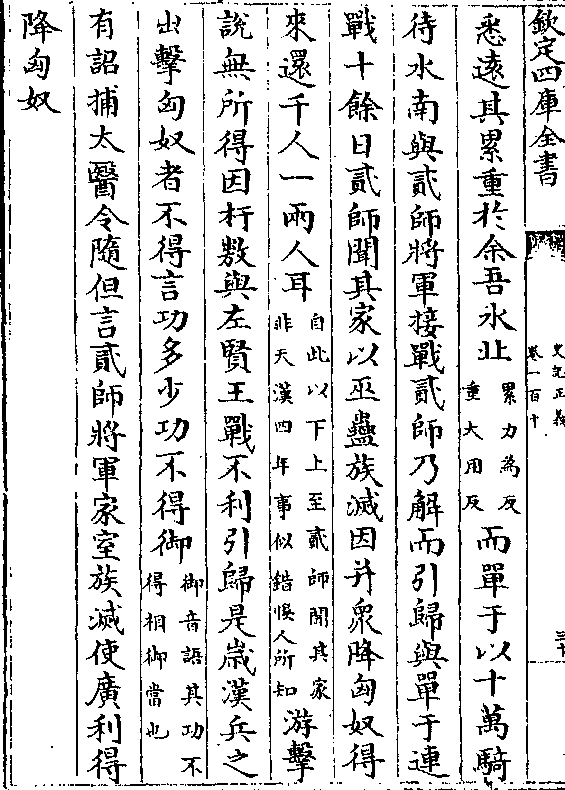 欽定四庫全書
史記正義
卷一百十
悉遠其累重於余吾水北累力為反重丈用反而單于以十萬騎
待水南與貳師將軍接戰貳師乃解而引歸與單于連
戰十餘日貳師聞其家以巫蠱族滅因并衆降匈奴得
來還千人一兩人耳自此以下上至貳師聞其家非天漢四年事似錯悞人所知游擊
說無所得因杅敖與左賢王戰不利引歸是歲漢兵之
出擊匈奴者不得言功多少功不得御御音語其功不得相御當也
有詔捕太醫令隨但言貳師將軍家室族滅使廣利得
降匈奴